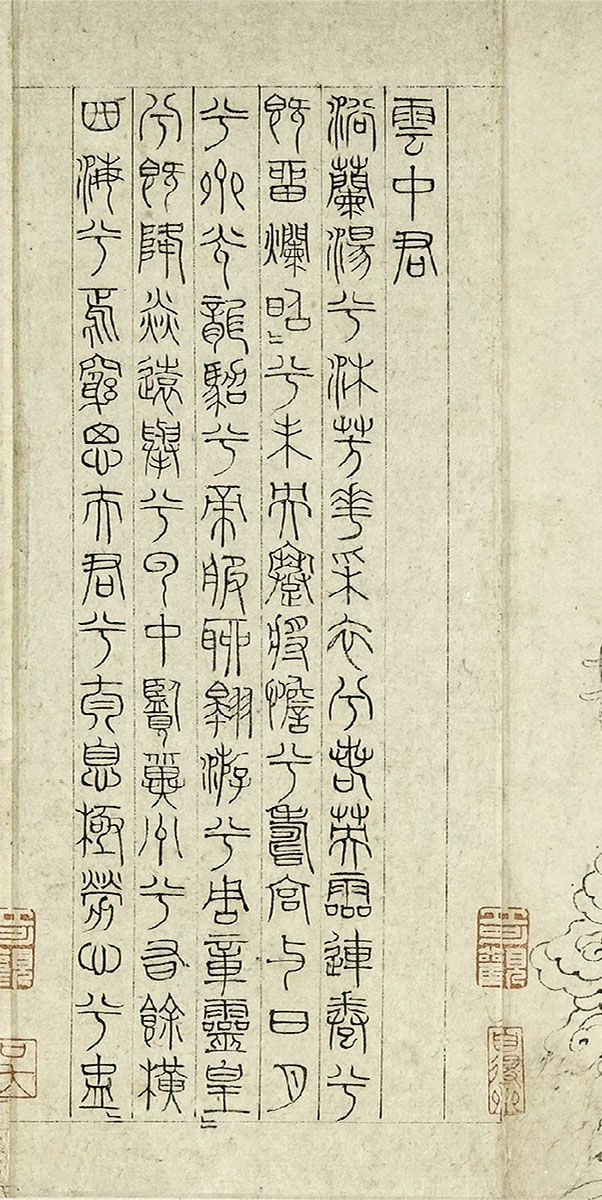 雲中君
浴蘭湯兮沐芳華采衣兮若英靈連蜷兮
既留爛昭〻兮未央蹇將憺兮壽宮与日月
兮齊光龍駕兮帝服聊翱游兮周章靈皇〻
兮既降猋遠舉兮雲中覽冀州兮有餘橫
四海兮焉窮思夫君兮太息極勞心兮